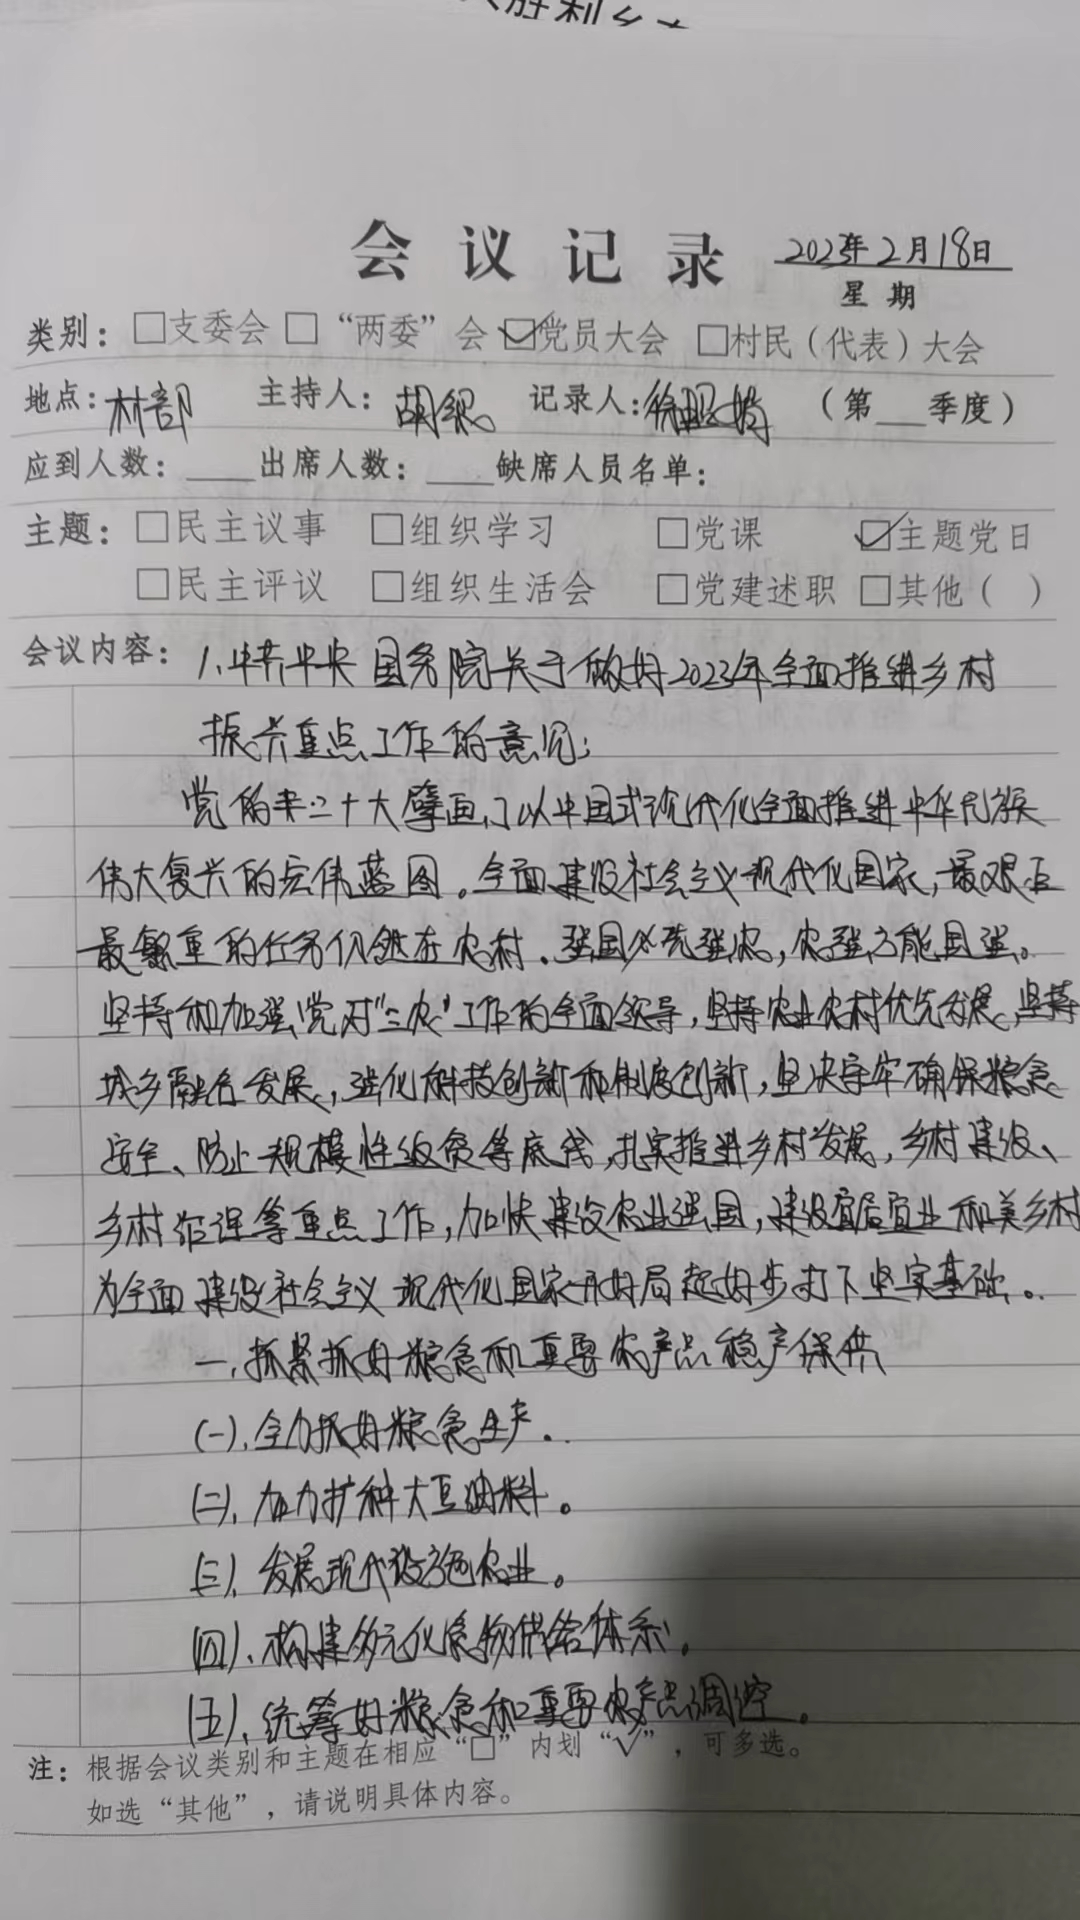 胜利乡
会议记录 2023年2月18日
星期
类别：□支委会 □“两委”会 ☑党员大会 □村民（代表）大会
地点：村部 主持人：胡 记录人：徐 （第___季度）
应到人数：____出席人数：____缺席人员名单：
主题：□民主议事 □组织学习 □党课 ☑主题党日
□民主评议 □组织生活会 □党建述职 □其他（ ）
会议内容：1、中共中央国务院关于做好2023年全面推进乡村
振兴重点工作的意见；
党的二十大擘画了以中国式现代化全面推进中华民族
伟大复兴的宏伟蓝图。全面建设社会主义现代化国家，最艰巨
最繁重的任务仍然在农村。强国必先强农，农强方能国强。
坚持和加强党对“三农”工作的全面领导，坚持农业农村优先发展，坚持
城乡融合发展，强化科技创新和制度创新，坚决守牢确保粮食
安全、防止规模性返贫等底线，扎实推进乡村发展，乡村建设、
乡村治理等重点工作，加快建设农业强国，建设宜居宜业和美乡村
为全面建设社会主义现代化国家开好局起好步打下坚实基础。
一、抓紧抓好粮食和重要农产品稳产保供
（一）、全力抓好粮食生产。
（二）、加力扩种大豆油料。
（三）、发展现代设施农业。
（四）、构建多元化食物供给体系。
（五）、统筹好粮食和重要农产品调控。
注：根据会议类别和主题在相应“□”内划“√”，可多选。
如选“其他”，请说明具体内容。